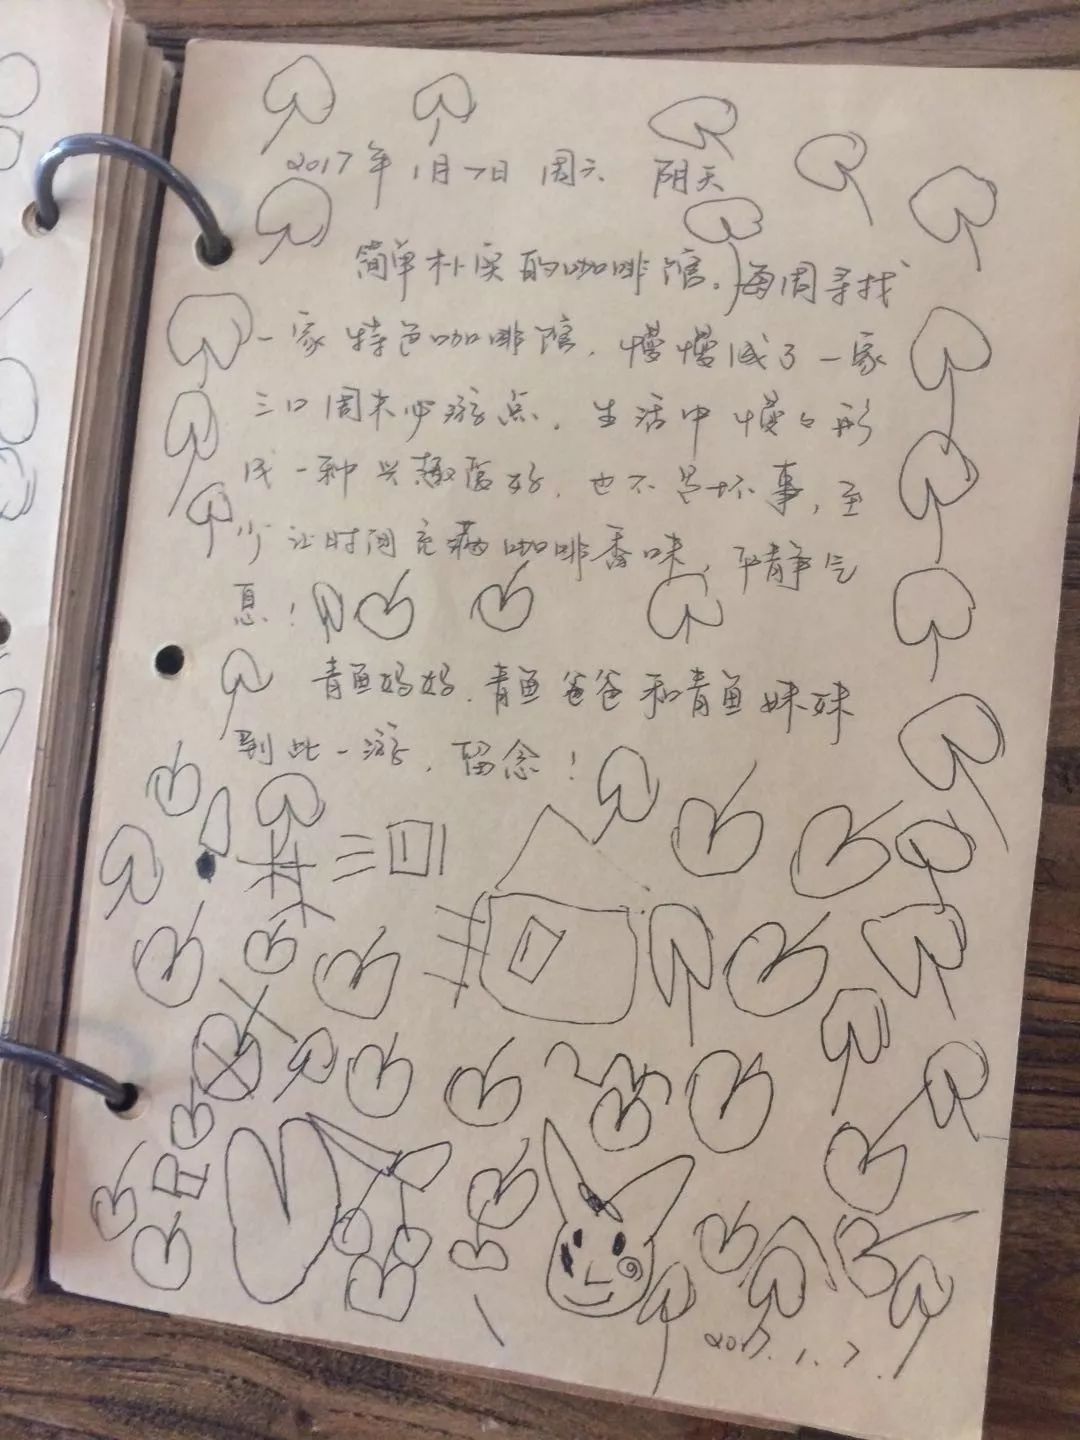 2017年1月7日 周六 阴天
简单朴实的咖啡馆。每周寻找
一家特色咖啡馆，慢慢成了一家
三口周末必游点。生活中慢々形
成一种兴趣爱好，也不是坏事，至
少让时间充满咖啡香味，平静气
息！
青鱼妈妈、青鱼爸爸和青鱼妹妹
到此一游，留念！
2017.1.7.